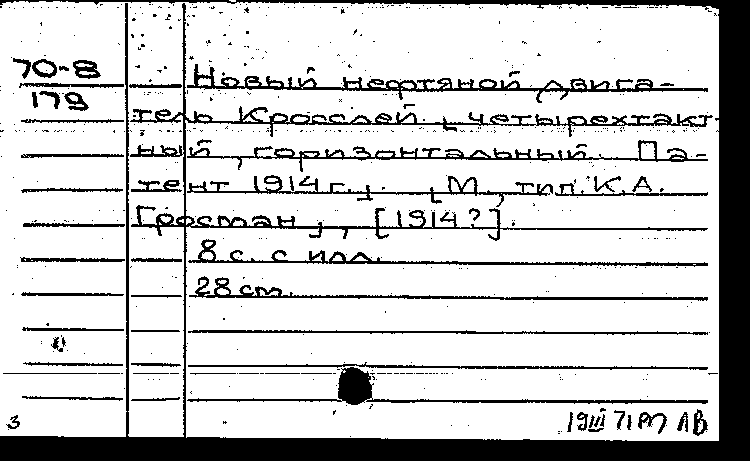 70-8
179
Новый нефтяной двига-
тель Кросслей. [четырехтакт-
ный, горизонтальный. Па-
тент 1914 г.]. [М., тип. К. А.
Гросман], [1914?].
8 с. с илл.
28 см.
3
19 III 71 РМ ЛВ